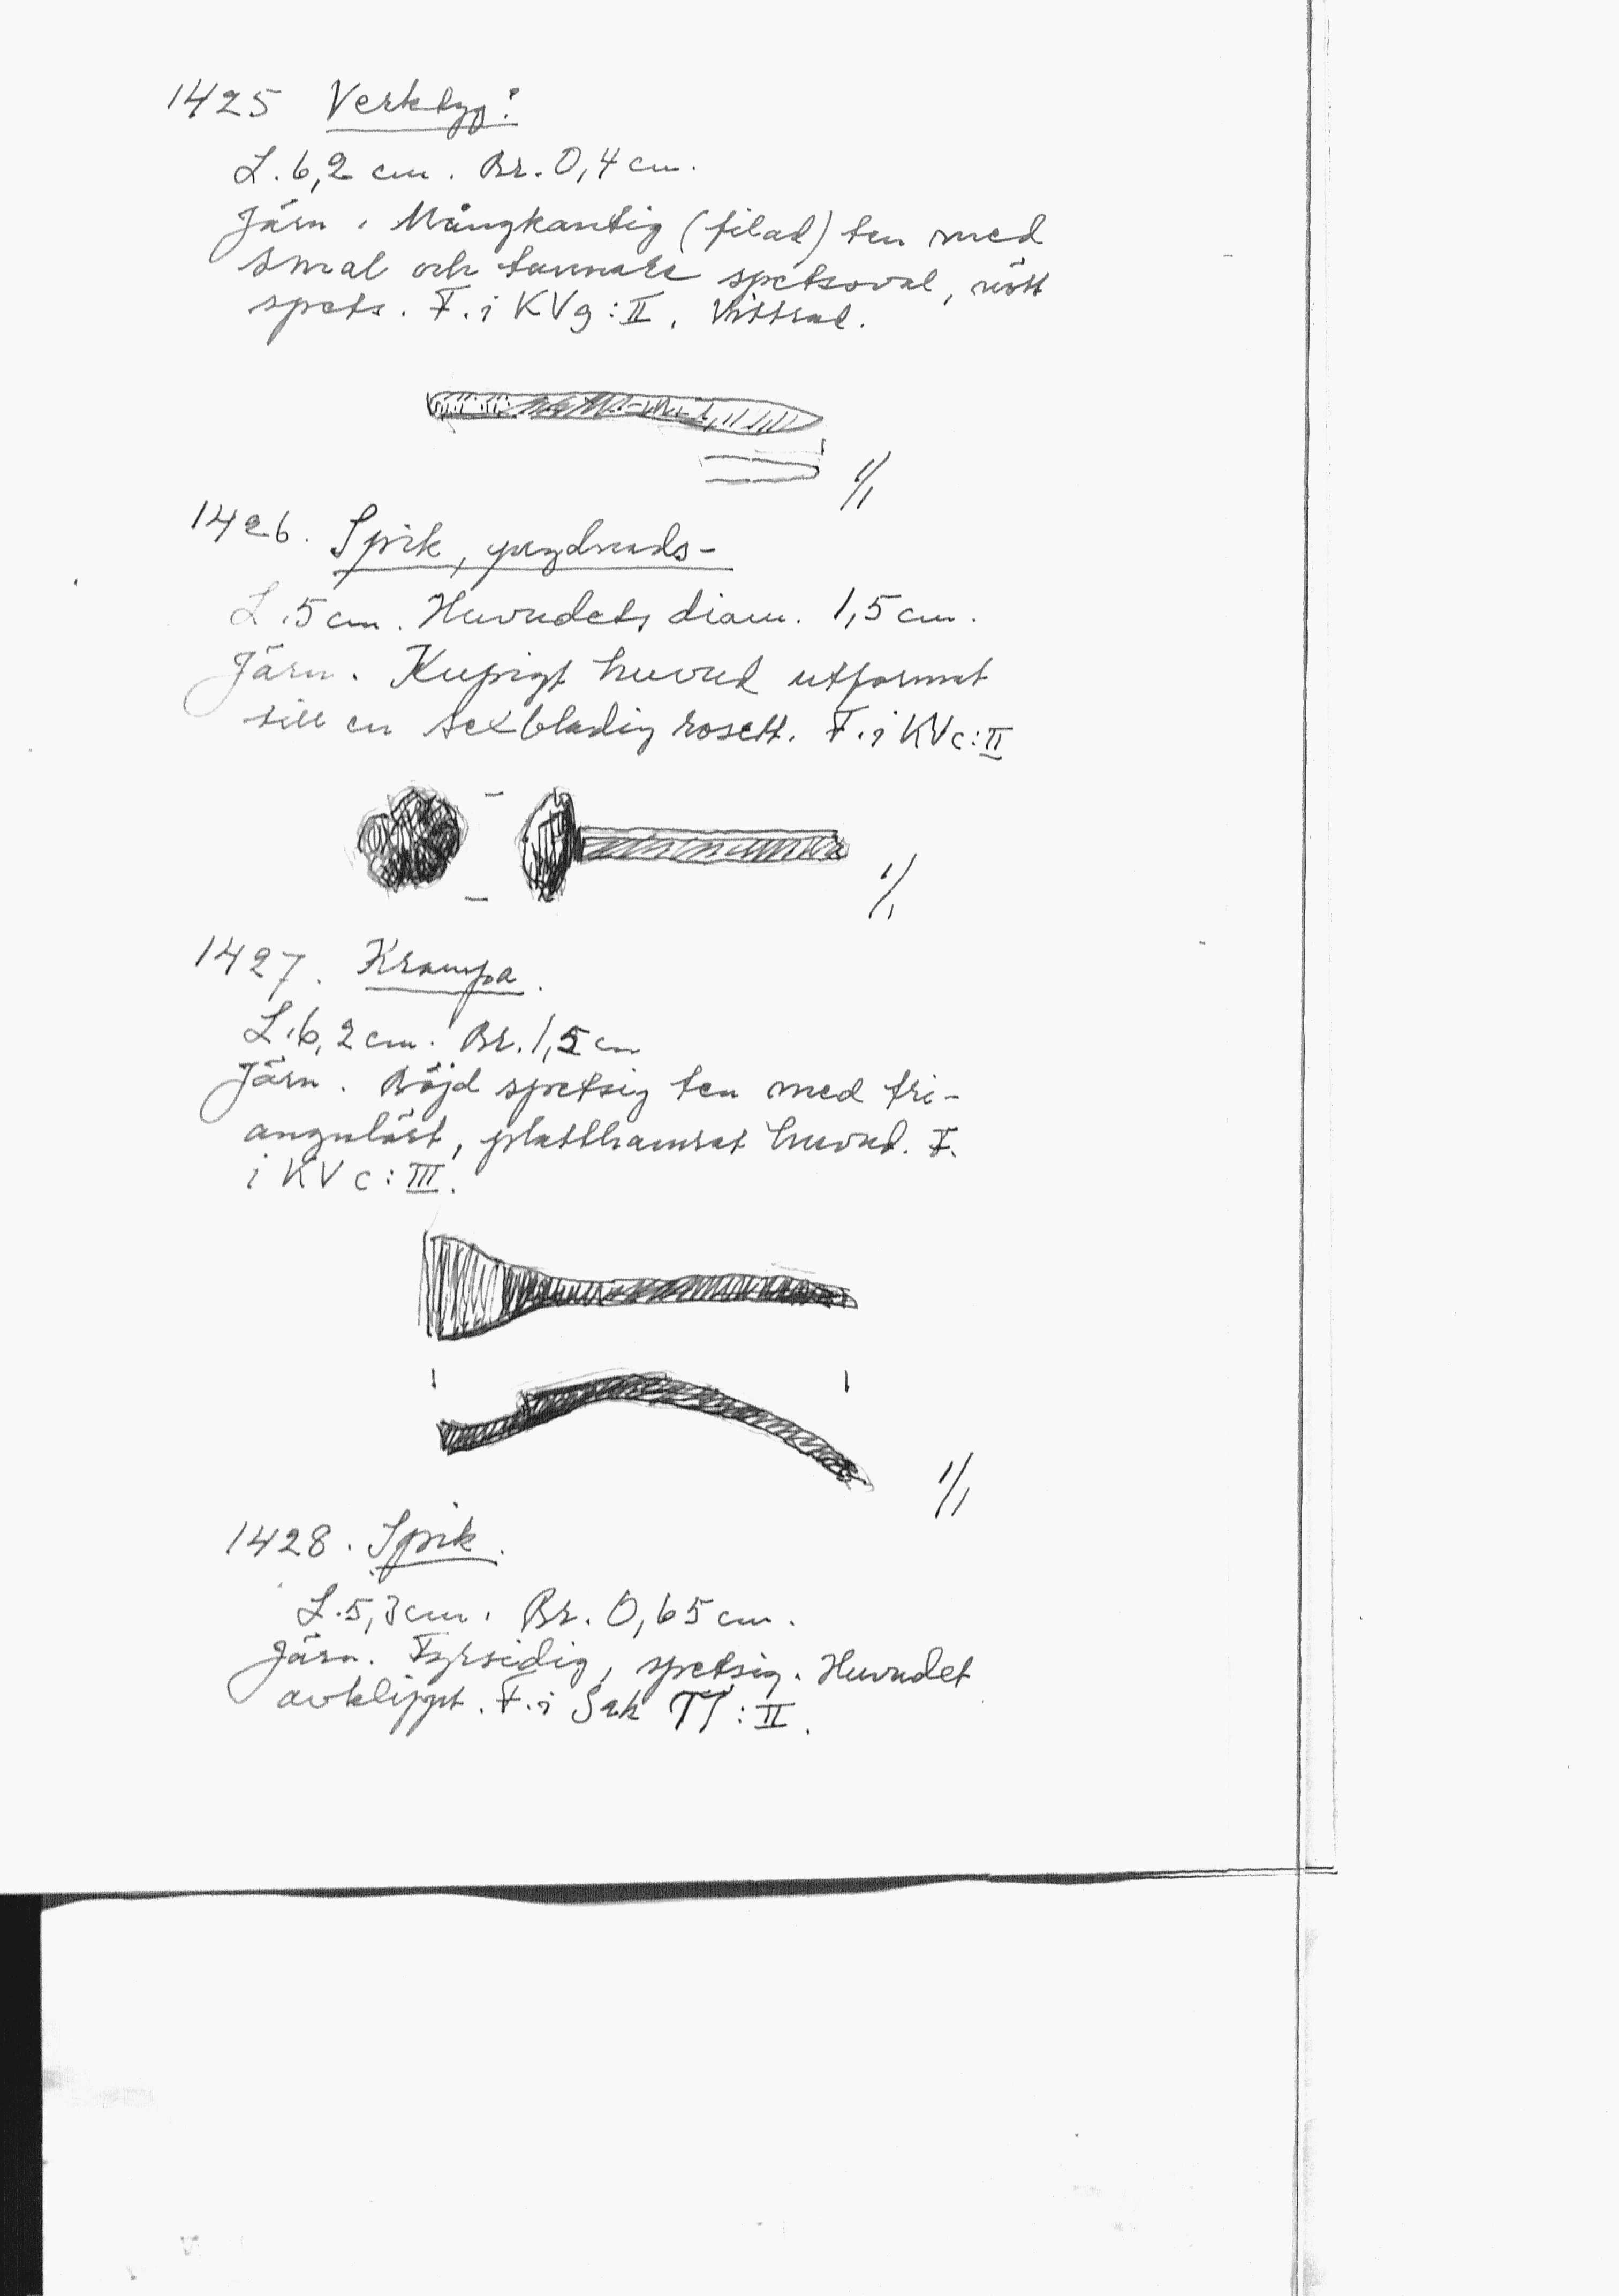 1425 Verktyg?
L. 6,2 cm. Br. 0,4 cm.
Järn. Mångkantig (filad) ten med
smal och tunnare spetsoval, nött
spets. F. i KVg:II. Vittrad.
1/1
1426. Spik, prydnads-
L. 5 cm. Huvudets diam. 1,5 cm.
Järn. Kupigt huvud utformat
till en sexbladig rosett. F. i KVc:II
1/1
1427. Krampa.
L. 6,2 cm. Br. 1,5 cm
Järn. Böjd spetsig ten med tri-
angulärt, platthamrat huvud. F.
i KVc:III.
1/1
1428. Spik.
L. 5,3 cm. Br. 0,65 cm.
Järn. Fyrsidig, spetsig. Huvudet
avklippt. F. i TT:II.